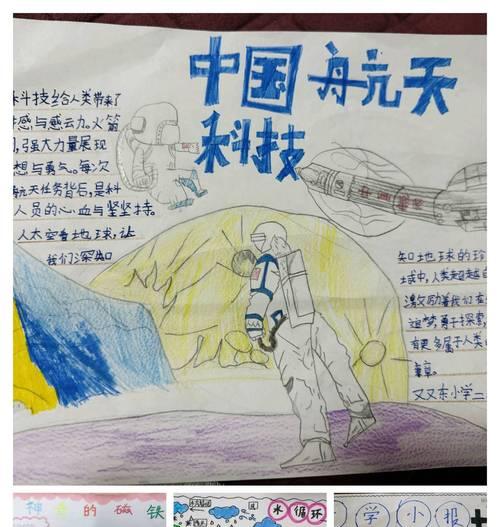 中国航天
科技
科技给人类带来了
感与感云力。火箭
,强大力量展现
想与勇气。每次
航天任务背后,是科
人员的心血与坚坚持。
人太空看地球,让
我们深知
知地球的珍
域中,人类超越自
激励着我们在
追梦,勇于探索,
有更多属于人类
章章。
又又东小学二
神奇的磁铁
水循环
学小报